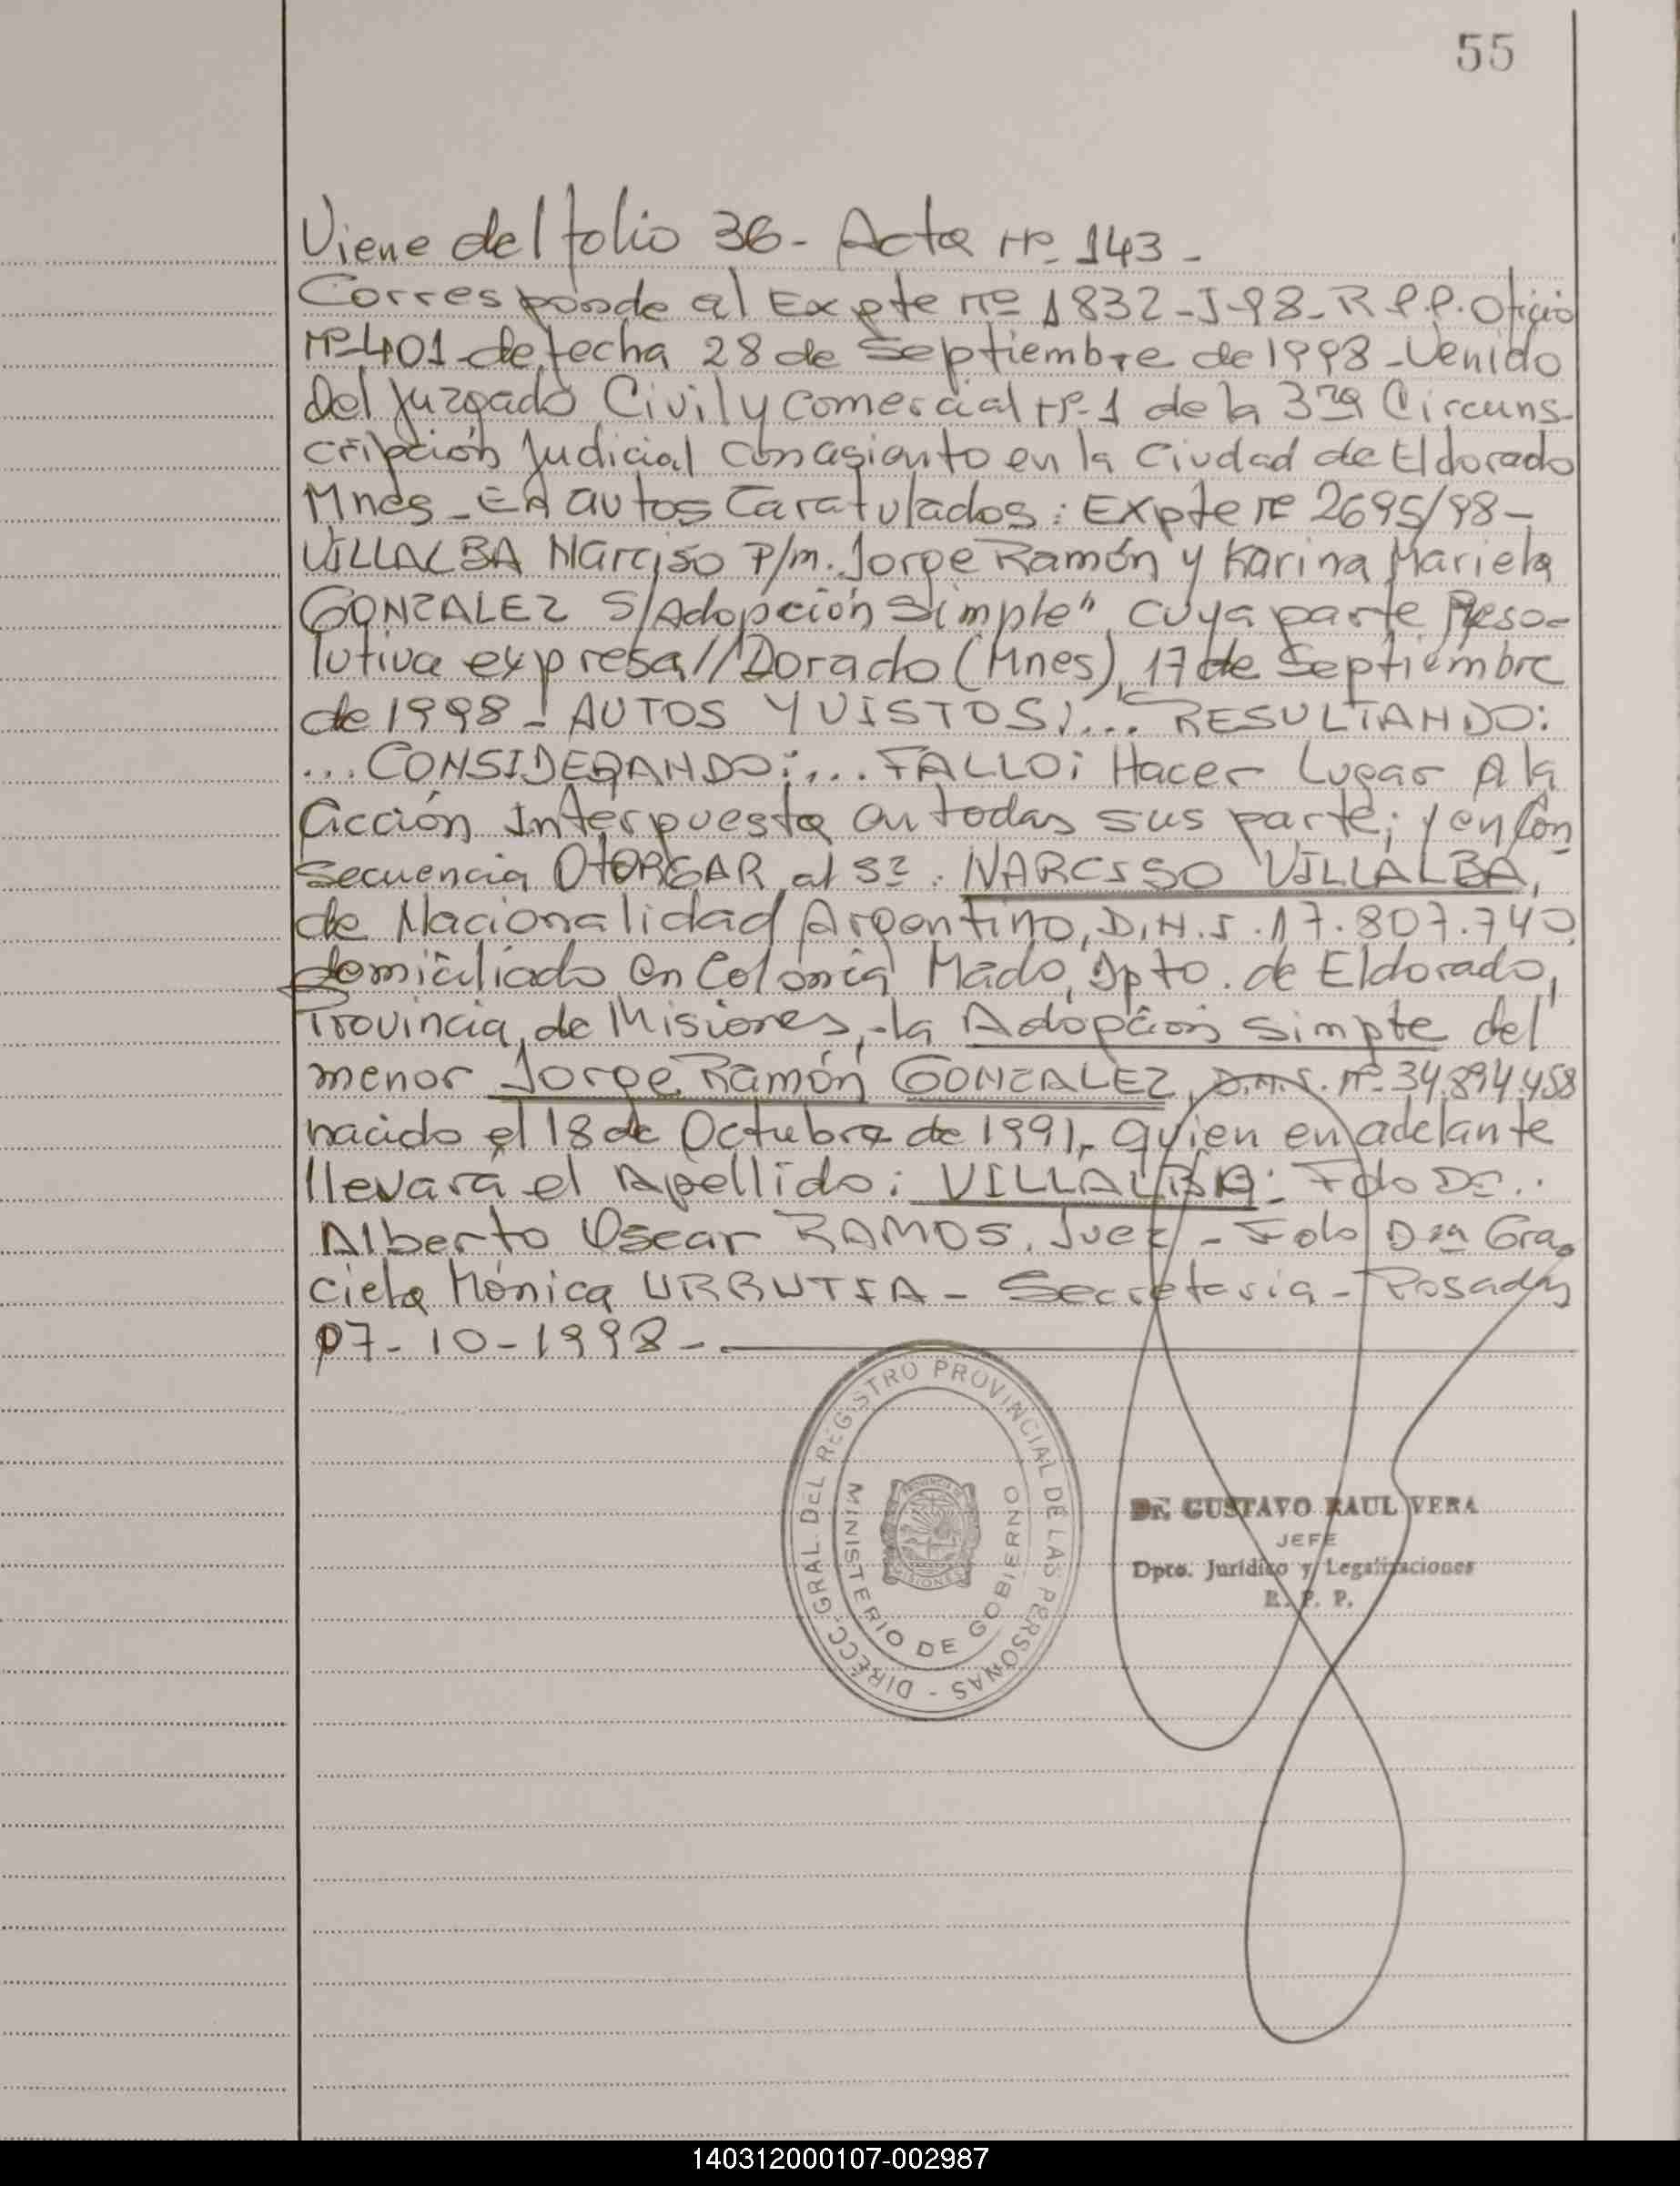 55
Viene del folio 36- Acta Nº 143-
Corresponde al Expte nº 1832-J-98-R.P.P. Oficio
Nº 401 de fecha 28 de Septiembre de 1998-Venido
Del Juzgado Civil y Comercial Nº 1 de la 3ra Circuns-
cripción Judicial con asiento en la Ciudad de Eldorado
Mnes-En autos Caratulados: Expte nº 2695/98-
VILLALBA Narciso P/m. Jorge Ramón y Karina Mariela
GONZALEZ S/Adopción Simple" cuya parte Reso-
lutiva expresa//Dorado (Mnes), 17 de Septiembre
de 1998- AUTOS Y VISTOS;... RESULTANDO:
...CONSIDERANDO:... FALLO: Hacer Lugar A la
acción Interpuesta en todas sus parte; y en Con
secuencia OTORGAR al Sr. NARCISO VILLALBA,
de Nacionalidad Argentino, D.N.I. 17.807.740,
domiciliado en Colonia Mado, Dpto. de Eldorado,
Provincia de Misiones,-la Adopción Simple del
menor Jorge Ramón GONZALEZ, D.N.I. Nº 34.894.458
nacido el 18 de Octubre de 1991,- quien en adelante
llevará el Apellido: VILLALBA: Fdo Dr..
Alberto Oscar RAMOS. Juez - Fdo Dra Gra-
ciela Mónica URRUTIA - Secretaria - Posadas
07-10-1998-
DIRECC. GRAL. DEL REGISTRO PROVINCIAL DE LAS PERSONAS -
MINISTERIO DE GOBIERNO
PROVINCIA DE
MISIONES
DR. GUSTAVO RAUL VERA
JEFE
Dpto. Jurídico y Legalizaciones
R. P. P.
140312000107-002987